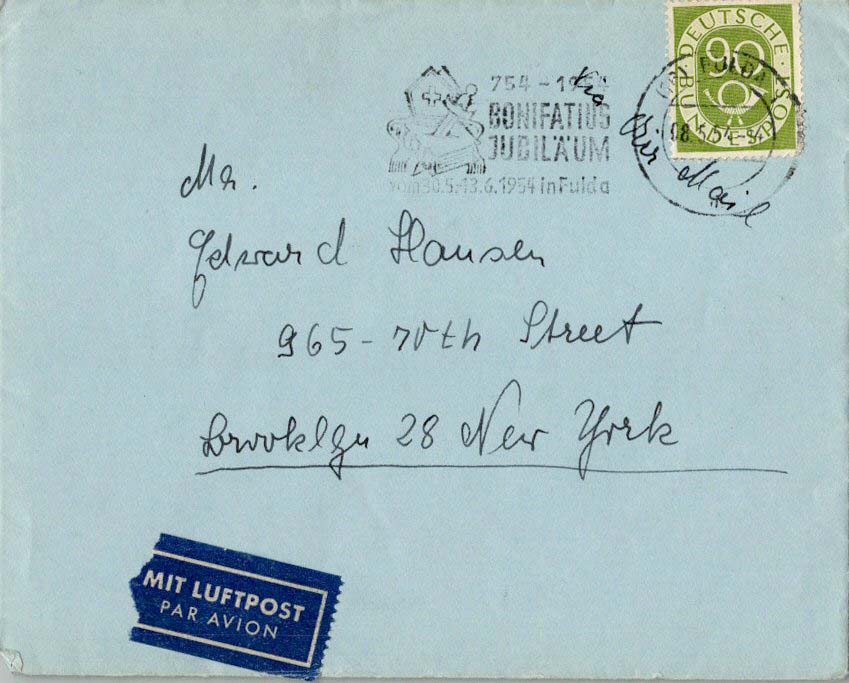 DEUTSCHE BUNDESPOST
90
FULDA
754 - 1954
BONIFATIUS
JUBILÄUM
vom 30.5.-13.6.1954 in Fulda
via
Air Mail
Mr.
Edward Hansen
965-70th Street
Brooklyn 28 New York
MIT LUFTPOST
PAR AVION